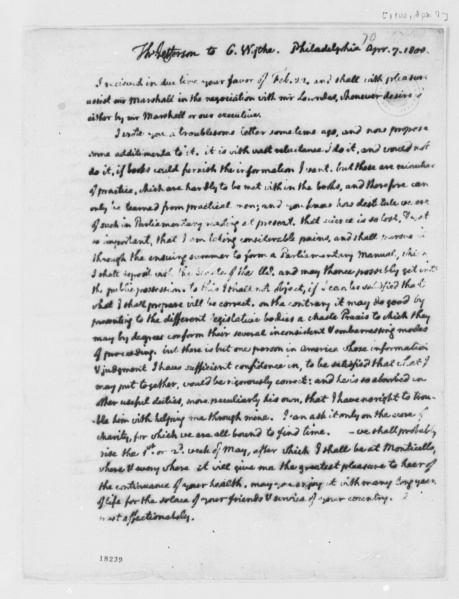 Th: Jefferson to G. Wythe. Philadelphia Apr. 7. 1800.
I received in due time your favor of Feb. 22. and shall with pleasure
assist mr Marshall in the negociation with mr Lowndes, whenever desired
either by mr Marshall or our executive.
I wrote you a troublesome letter some time ago, and now propose
some additiments to it. it is with vast reluctance I do it, and would not
do it, if books could furnish the information I want. but these are minutiae
of practice, which are hardly to be met with in the books, and therefore can
only be learned from practical men; and you know how destitute we are
of such in Parliamentary reading at present. that science is so lost, & yet
so important, that I am taking considerable pains, and shall pursue it
through the ensuing summer to form a Parliamentary Manual, which
I shall deposit with the Senate of the US. and may thence possibly get into
the public possession. to this I shall not object, if I can be satisfied that
what I shall prepare will be correct. on the contrary it may do good by
presenting to the different legislative bodies a chaste Praxis to which they
may by degrees conform their several inconsistent & embarrassing modes
of proceeding. but there is but one person in America whose information
& judgment I have sufficient confidence in, to be satisfied that what I
may put together, would be rigorously correct; and he is so absorbed in
other useful duties, more peculiarly his own, that I have no right to trou-
-ble him with helping me through mine. I can ask it only on the score of
charity, for which we are all bound to find time. — we shall probably
rise the 1st or 2d. week of May, after which I shall be at Monticello,
where & every where it will give me the greatest pleasure to hear of
the continuance of your health. may you enjoy it with many long years
of life for the solace of your friends & service of your country.
most affectionately.
18239